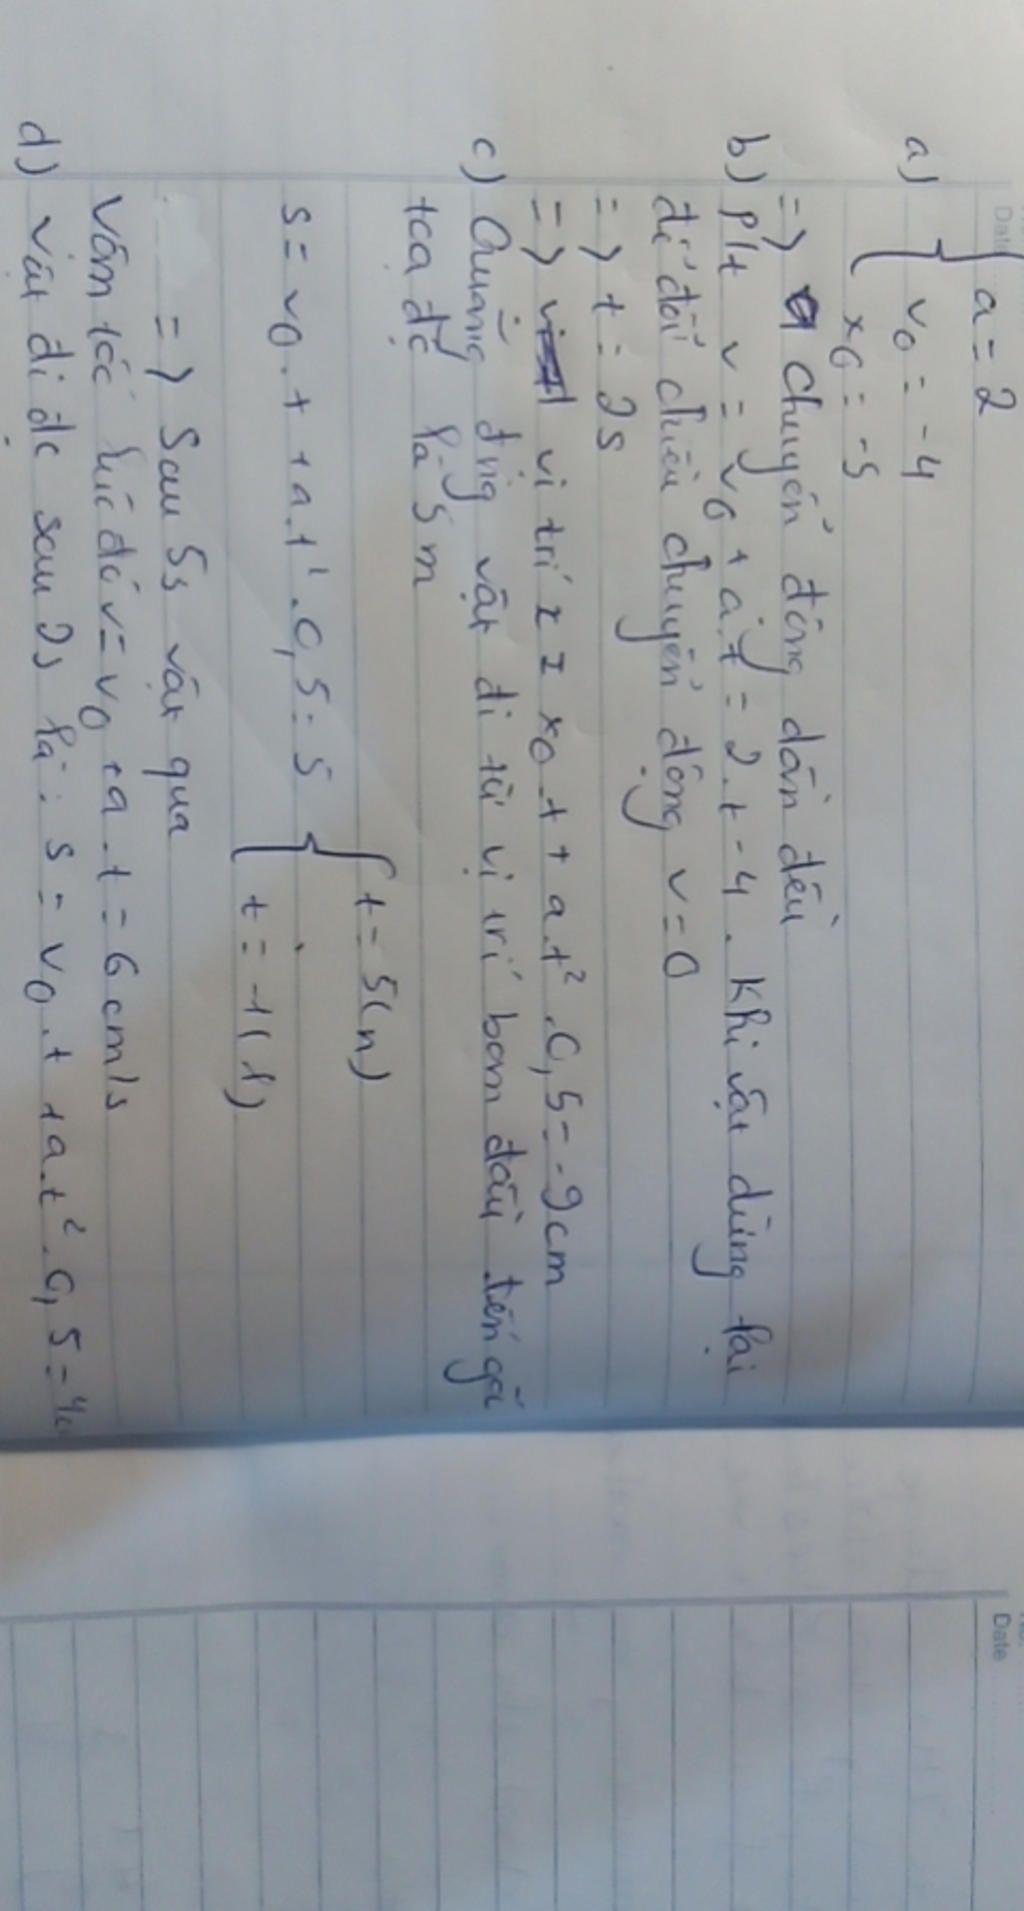 Date
a) { a = 2
v0 = -4
x0 = -5
=) chuyển động dần đều
b) Ptt v = v0 + a.t = 2.t - 4. Khi vật dừng lại
để đổi chiều chuyển động v = 0
=) t = 2s
=) vị trí x = x0.t + a.t².0,5 = -9cm
c) Quãng đng vật đi từ vị trí ban đầu tến gố
tọa độ là 5m
s = v0.t + a.t².0,5 = 5 { t = 5(n)
t = -1(l)
=) Sau 5s vật qua
Vận tốc lúc đó v = v0 + a.t = 6cm/s
d) Vật đi đc sau 2s là: s = v0.t + a.t².0,5 =
Date